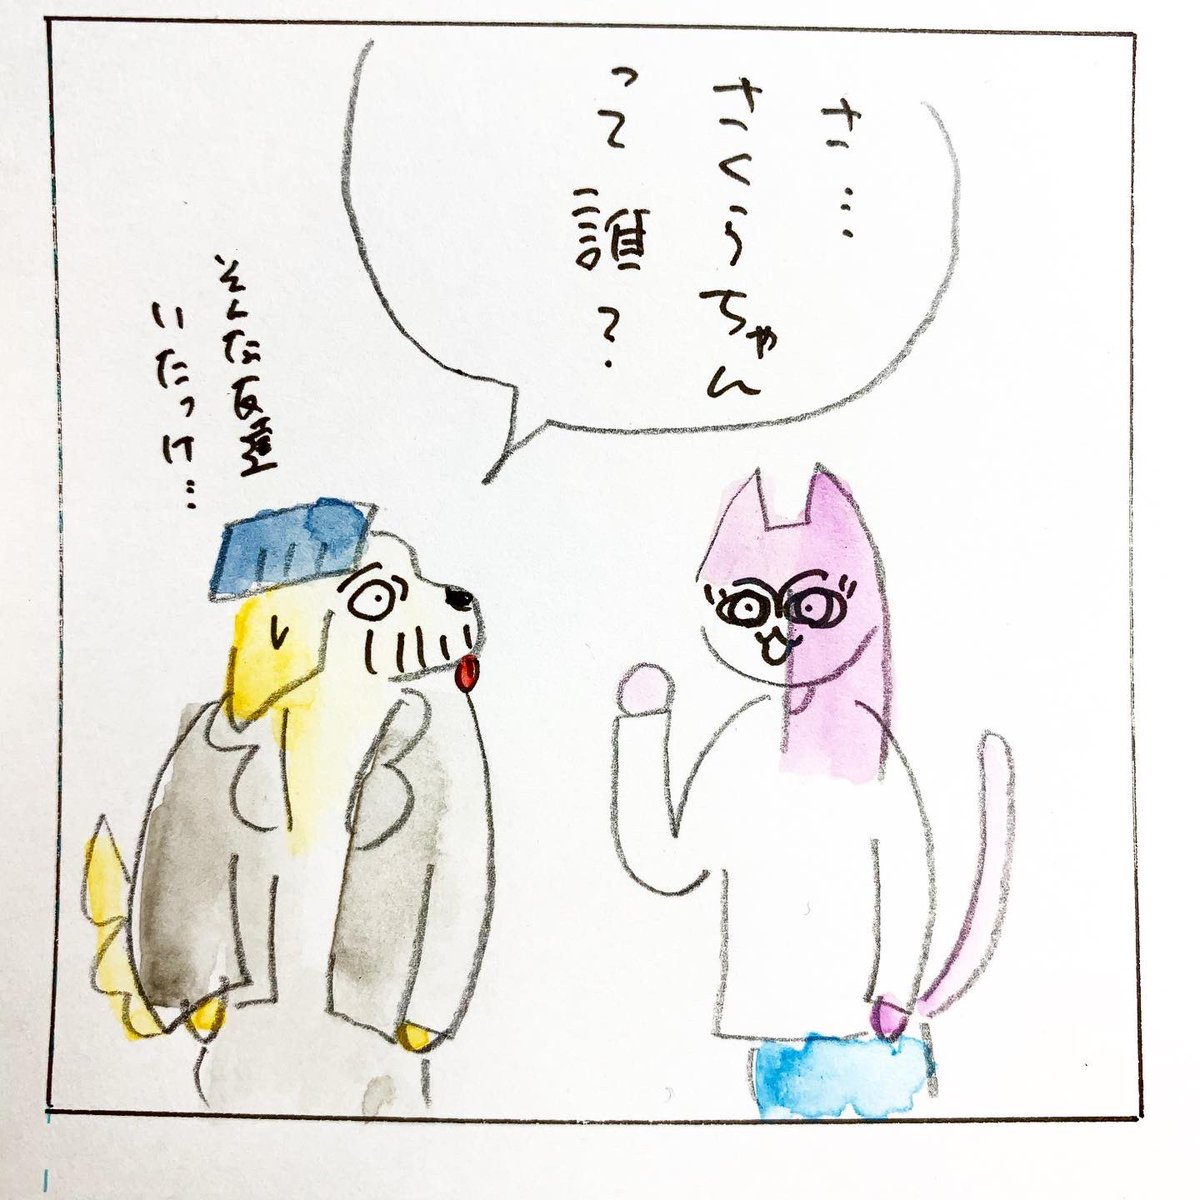 さ…
さくらちゃん
って誰?
そんな友達
いたっけ…